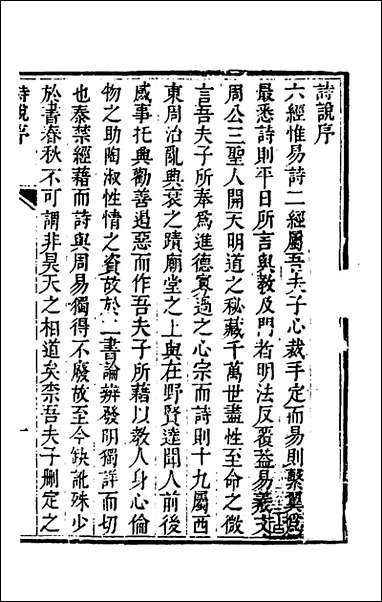 詩說序
六經惟易詩二經屬吾夫子心裁手定而易則繫翼爲
最悉詩則平日所言與教及門者明法反覆益易羲文
周公三聖人開天明道之秘藏千萬世盡性至命之微
言吾夫子所奉爲進德寡過之心宗而詩則十九屬西
東周治亂興衰之蹟廟堂之上與在野賢達聞人前後
感事托興勸善遏惡而作吾夫子所藉以教人身心倫
物之助陶淑性情之資故於二書論辨發明獨詳而切
也秦禁經藉而詩與周易獨得不廢故至今缺訛殊少
於書春秋不可謂非昊天之相道矣柰吾夫子刪定之
詩說序
一